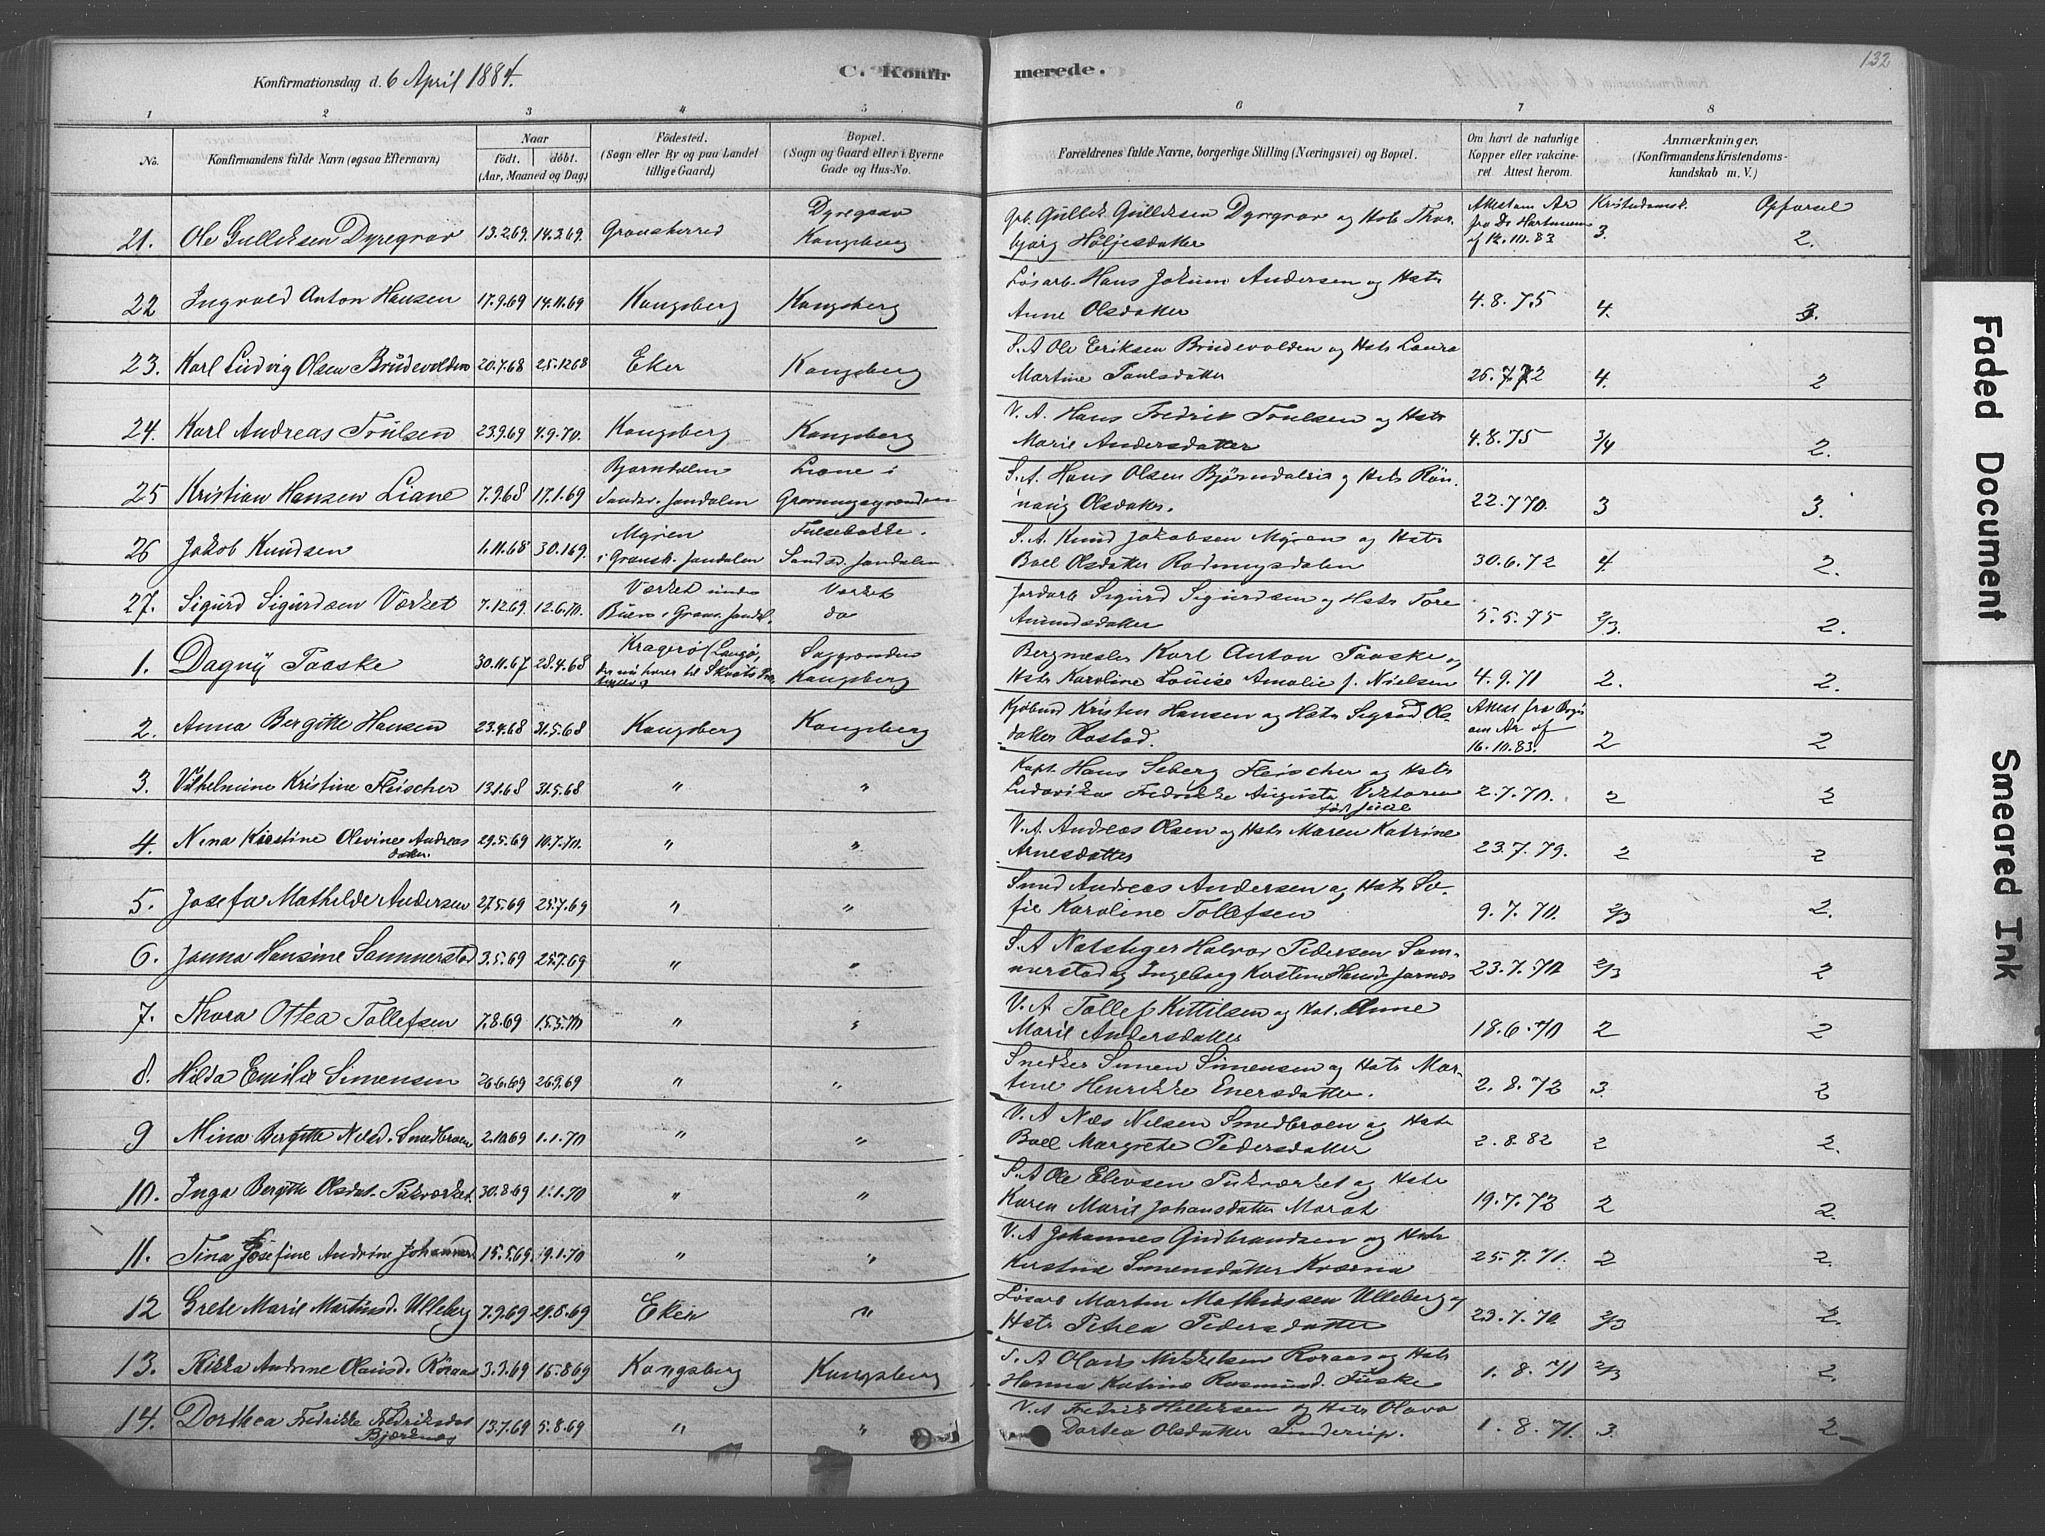 132
Konfirmationsdag d. 6 April 1884.
C. Konfirmerede.
1 2 3 4 5 6 7 8
No.
Konfirmandens fulde Navn (ogsaa Efternavn)
Naar
født. døbt.
(Aar, Maaned og Dag)
Födested.
(Sogn eller By og paa Landet
tillige Gaard)
Bopæl.
(Sogn og Gaard eller i Byerne
Gade og Hus-No.
Forældrenes fulde Navne, borgerlige Stilling (Næringsvei) og Bopæl.
Om havt de naturlige
Kopper eller vakcine-
ret Attest herom.
Anmærkninger.
(Konfirmandens Kristendoms-
kundskab m. V.)
Kristendomsk. Opførsel
21. Ole Gulliksen Dyregrav 13.2.69. 14.3.69. Gransherred Dyregrav Kongsberg Gullik Gulliksen Dyregrav og Hstr Thor-
bjørg Høljesdatter Attest om Ar fra Dr Hartmann af 12.10.83 3. 2.
22 Ingvald Anton Hansen 17.9.69 14.11.69 Kongsberg Kongsberg Løsarb. Hans Jokum Andersen og Hstr
Anne Olsdatter 4.8.75 4. 3.
23. Karl Ludvig Olsen Brudevolden 20.7.68 25.12.68 Eker Kongsberg S.A Ole Eriksen Brudevolden og Hstr Laura
Martine Paulsdatter 26.7.72 4. 2
24. Karl Andreas Poulsen 23.9.69 4.9.70. Kongsberg Kongsberg V.A. Hans Fredrik Poulsen og Hstr
Marie Andersdatter 4.8.75 3/4 2.
25 Kristian Hansen Liane 7.9.68 17.1.69 Bjørndalen Sandsv. Jondalen Liane i S.A. Hans Olsen Bjørndalen og Hstr Røn-
naug Olsdatter. 22.7.70. 3 3.
26 Jakob Knudsen 1.11.68 30.1.69. Myren i Gransh. Jondalen Sandsv. Jondalen S.A. Knud Jakobsen Myren og Hstr
Boel Olsdatter 30.6.72 4. 2.
27. Sigurd Sigurdsen Værket 7.12.69. 12.6.70. Værket under Værket do Jordarb Sigurd Sigurdsen og Hstr Tore
Amundsdatter 5.5.75 2/3. 2.
1. Dagny Paaske 30.11.67 28.4.68 Kragerø Kongsberg Bergmester Karl Anton Paaske og
Hstr Karoline Louise Amalie f. Nielsen 4.9.71 2. 2.
2. Anna Bergitte Hansen 23.4.68 31.5.68 Kongsberg Kongsberg Kristen Hansen og Hstr Sigrid Ols-
datter 16.10.83. 2 2
3. Vilhelmine Kristine Fleischer 13.1.68 31.5.68 " " Kapt. Hans Seberg Fleischer og Hstr
Ludovika Fredrikke Augusta Viktoria
født Juell 2.7.70. 2 2
4. Nina Kirstine Olevine Andreas
datter 29.5.69 10.7.70. " " V.A. Andreas Olsen og Hstr Maren Katrine
Arnesdatter 23.7.79. 2 2
5. Josefa Mathilde Andersen 27.5.69 25.7.69 " " Smed Andreas Andersen og Hstr So-
fie Karoline Tollefsen 9.7.70. 2/3 2.
6. Janna Hansine Sommerstad 3.5.69 25.7.69 " " S.A Natstiger Halvor Pedersen Som-
merstad og Ingeborg Kirstine 23.7.70. 2/3 2
7. Thora Ottea Tollefsen 7.8.69 15.5.70 " " V.A Tollef Kittilsen og Hst. Anne
Marie Andersdatter 18.6.70 2 2
8. Hilda Emilie Simensen 26.6.69 26.9.69 " " Snedker Simen Simensen og Hstr Mar-
tine Henrikke Enersdatter. 2.8.72 3. 2
9 Mina Bergitte Nilsd. Smedbroen 2.10.69 1.1.70 " " V.A Nils Nilsen Smedbroen og Hstr
Boel Margrete Pedersdatter 2.8.82 2 2.
10. Inga Bergitte Olsdat. Pukværket. 30.8.69 1.1.70 " " S.A Ole Elevsen Pukværket og Hstr
Karen Marie Johansdatter 19.7.72 2 2.
11. Tina Josefine Andrine Johannesd 15.5.69. 9.1.70 " " V.A Johannes Gudbrandsen og Hstr
Kirstine Simensdatter Kværna 25.7.71. 2 2.
12 Grete Marie Martinsd. Ulleberg 7.9.69 29.8.69 Eker " Løsarb Martin Mathiassen Ulleberg og
Hstr Petrea Pedersdatter 23.7.70. 2/3 2.
13. Rikka Andrine Olausd. Roraas 3.3.69 15.8.69 Kongsberg Kongsberg S.A Olaus Mikkelsen Roraas og Hstr
Hanna Katrine Rasmusd. 1.8.71 2/3 2.
14. Dorthea Fredrikke Fredriksdat
Bjerknes 13.7.69 5.8.69 " " V.A Fredrik Hellesen og Hstr Olava
Dortea Olsdatter 1.8.71. 3. 2
Faded Document
Smeared Ink